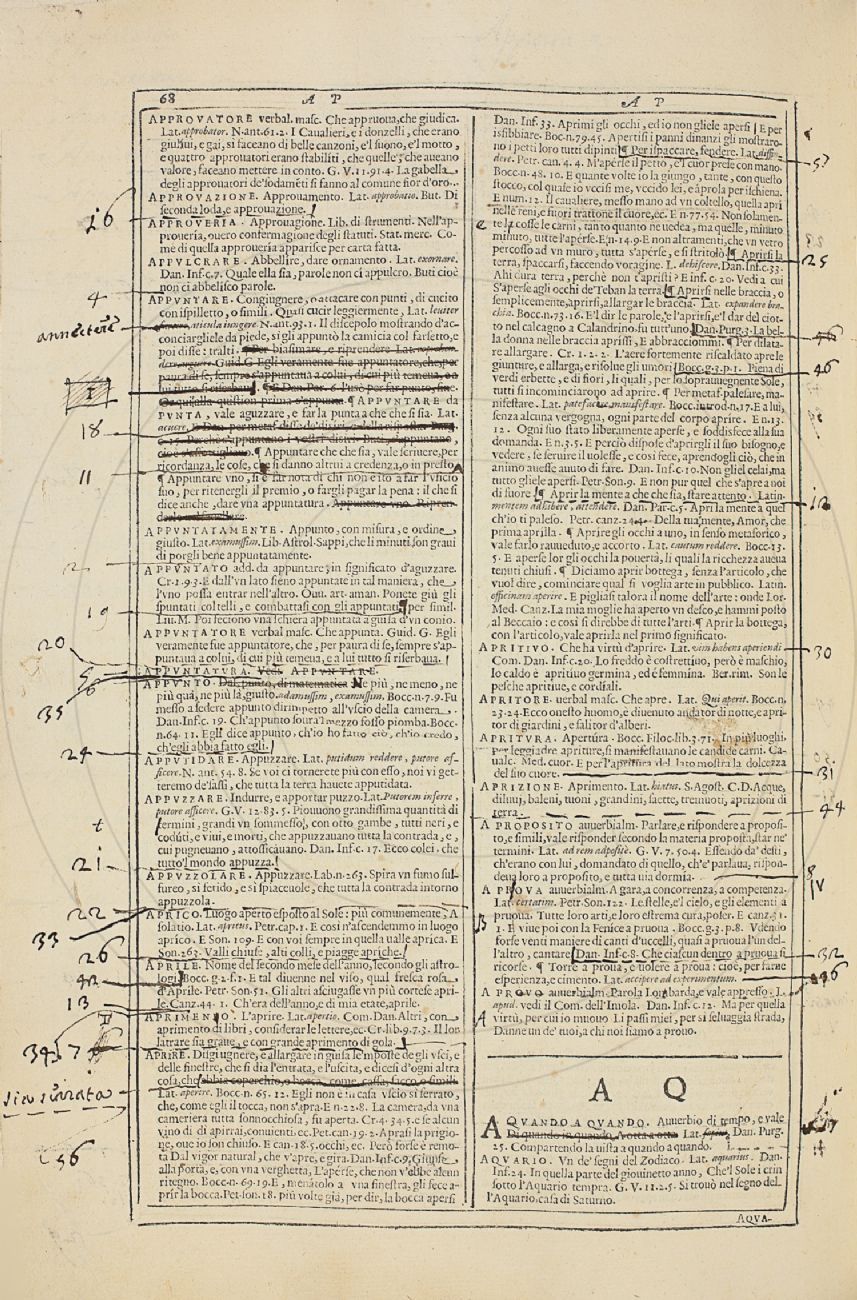 68 A P
APPROVATORE verbal. masc. Che appruoua, che giudica.
Lat. approbator. N. ant. 61. 2. I Caualieri, e i donzelli, che erano
giulɩui, e gai, si faceano di belle canzoni, e'l suono, e'l motto,
e quattro approuatori erano stabiliti, che quelle, che aueano
valore, faceano mettere in conto. G. V. 11. 91. 4. La gabella
degli approuatori de' sodaménti si fanno al comune fior d'oro..
APPROVAZIONE. Approuamento. Lat. approbatio. But. Di
seconda loda, e approuazione.
APPROVERIA. Approuagione. Lib. di strumenti. Nell'ap-
proueria, ouero confermagione degli statuti. Stat. merc. Co-
me di quella approueria apparisce per carta fatta.
APPVLCRARE. Abbellire, dare ornamento. Lat. exornare.
Dan. Inf. c. 7. Quale ella sia, parole non ci appulcro. Buti cioè
non ci abbelisco parole.
APPVNTARE. Congiugnere, o attacare con punti, di cucito
con ispilletto, o simili. Quasi cucir leggiermente, Lat. leuiter
iungere. N. ant. 93. 1. Il discepolo mostrando d'ac-
conciargliele da piede, si gli appuntò la camicia col farsetto, e
poi disse: tralti. ¶ Per biasimare, e riprendere Lat.
Guid. G. Egli veramente fue appuntatore, che per
paura di se, sempre s'appuntaua a colui, di cui più temeua, e a
lui tutto si riserbaua. ¶ Dan. Par. 6. l'usò per far punto, fine.
Or qui alla question prima s'appunta. ¶ APPVNTARE da
PVNTA, vale aguzzare, e far la punta a che che si sia. Lat.
acuere.
¶ Appuntare che che sia, vale scriuere, per
ricordanza, le cose, che si danno altrui a credenza, o in presto
¶ Appuntare vno, si è far nota di chi non è ito a far l'vficio
suo, per ritenergli il premio, o fargli pagar la pena: il che si
dice anche, dare vna appuntatura. Appuntare vno. Ripren-
APPVNTATAMENTE. Appunto, con misura, e ordine
giusto. Lat. examussim. Lib. Astrol. Sappi, che li minuti son graui
di porgli bene appuntatamente.
APPVNTATO add. da appuntare; in significato d'aguzzare.
Cr. 1. 9. 3. E dall'vn lato sieno appuntate in tal maniera, che
l'vno possa entrar nell'altro. Ouu. art. aman. Ponete giù gli
spuntati coltelli, e combattasi con gli appuntati ¶ per simil.
Liu. M. Poi feciono vna schiera appuntata a guisa d'vn conio.
APPVNTATORE verbal masc. Che appunta. Guid. G. Egli
veramente fue appuntatore, che, per paura di se, sempre s'ap-
puntaua a colui, di cui più temeua, e a lui tutto si riserbaua.
APPVNTATVRA. Vedi APPVNTARE.
APPVNTO. Dal punto, di matematica Ne più, ne meno, ne
più quà, ne più là, giusto. adamussim, examussim. Bocc. n. 7. 9. Fu
messo a sedere appunto dirimpetto all'vscio della camera.
Dan. Inf. c. 19. Ch'appunto soura'l mezzo fosso piomba. Bocc.
n. 64. 11. Egli dice appunto, ch'io ho fatto ciò, ch'io credo,
ch'egli abbia fatto egli.
APPVTIDARE. Appuzzare. Lat. putidum reddere, putore af-
ficere. N. ant. 54. 8. Se voi ci tornerete più con esso, noi vi get-
teremo de' sassi, che tutta la terra hauete apputidata.
APPVZZARE. Indurre, e apportar puzzo. Lat. Putorem inferre,
putore afficere. G. V. 12. 83. 5. Piouuono grandissima quantità di
vermini, grandi vn sommesso, con otto gambe, tutti neri, e
codúti, e viui, e morti, che appuzzauano tutta la contrada, e,
cui pugneuano, attossicauano. Dan. Inf. c. 17. Ecco colei, che
tutto'l mondo appuzza.
APPVZZOLARE. Appuzzare. Lab. n. 263. Spira vn fumo sul-
fureo, si fetido, e si spiaceuole, che tutta la contrada intorno
appuzzola.
APRICO. Luogo aperto esposto al Sole: più comunemente, A
solatìo. Lat. apricus. Petr. cap. 1. E così n'ascendemmo in luogo
aprico. E Son. 109. E con voi sempre in quella ualle aprica. E
Son. 263. Valli chiuse, alti colli, e piagge apriche.
APRILE. Nome del secondo mese dell'anno, secondo gli astro-
logi. Bocc. g. 2. f. 1. E tal diuenne nel viso, qual fresca rosa
d'Aprile. Petr. Son. 52. Gli altri asciugasse vn più cortese apri-
le. Canz. 44. 1. Ch'era dell'anno, e di mia etate, aprile.
APRIMENTO. L'aprire. Lat. apertio. Com. Dan. Altri, con
aprimento di libri, considerar le lettere, ec. Cr. lib. 9. 7. 3. Il lor
latrare sia graue, e con grande aprimento di gola.
APRIRE. Disgiugnere, e allargare in guisa le'mposte degli vsci, e
delle finestre, che si dia l'entrata, e l'uscita, e dicesi d'ogni altra
cosa, che abbia coperchio, o bocca, come cassa, sacco, o simili.
Lat. aperire. Bocc. n. 65. 12. Egli non è in casa vscio si serrato,
che, come egli il tocca, non s'apra. E n. 22. 8. La camera, da vna
cameriera tutta sonnocchiosa, fu aperta. Cr. 4. 34. 5. e se alcun
vino di di aprirai, conuienti ec. Pet. can. 19. 2. Aprasi la prigio-
ne, oue io son chiuso. E can. 18. 5. occhi, ec. Però forse è remo-
ta Dal vigor natural, che v'apre, e gira. Dan. Inf. c. 9. Giunse
alla porta, e, con vna verghetta, L'apérse, che non v'ebbe alcun
ritegno. Bocc. n. 69. 19. E, menátolo a vna finestra, gli fece a-
prir la bocca. Pet. son. 18. più volte già, per dir, la bocca apersi
16
4
annettere
1
18
11
2
19
20
5
6
35
24
t
21
22
33
26
42
13
34
7
sia serrata
56
A P
Dan. Inf. 33. Aprimi gli occhi, ed io non gliele apersi E per
isfibbiare. Bocc. n. 79. 45. Apertisi i panni dinanzi gli mostraro-
no i petti loro tutti dipinti ¶ Per ispaccare, fendere. Lat. diffin-
dere. Petr. can. 4. 4. M'aperse il petto, e'l cuor prese con mano.
Bocc. n. 48. 10. E quante volte io la giungo, tante, con questo
stocco, col quale io vccisi me, vccido lei, e aprola per ischiena.
E num. 12. Il caualiere, messo mano ad vn coltello, quella aprì
nelle reni, e fuori trattone il cuore, ec. E n. 77. 54. Non solamen-
te le cosse le carni, tanto quanto ne uedea, ma quelle, minuto
minuto, tutte l'apérse. E n. 14. 9. E non altramenti, che vn vetro
percosso ad vn muro, tutta s'aperse, e si stritolò. ¶ Aprirsi la
terra, spaccarsi, facendo voragine. L. dehiscere. Dan. Inf. c. 33.
Ahi dura terra, perchè non t'apristi? E inf. c. 20. Vedi a cui
S'aperse agli occhi de' Teban la terra. ¶ Aprirsi nelle braccia, o
semplicemente, aprirsi, allargar le braccia. Lat. expandere bra-
chia. Bocc. n. 73. 16. E'l dir le parole, e l'aprirsi, e'l dar del ciot-
to nel calcagno a Calandrino, fu tutt'uno. Dan. Purg. 3. La bel-
la donna nelle braccia aprissi, E abbracciommi. ¶ Per dilata-
re allargare. Cr. 1. 2. 2. L'aere fortemente riscaldato apre le
giunture, e allarga, e risolue gli umori. Bocc. g. 3. p. 1. Piena di
verdi erbette, e di fiori, li quali, per lo soprauuegnente Sole,
tutti si incominciarono ad aprire. ¶ Per metaf. palesare, ma-
nifestare. Lat. patefacere, manifestare. Bocc. introd. n. 17. E a lui,
senza alcuna vergogna, ogni parte del corpo aprire. E n. 13.
12. Ogni suo stato liberamente aperse, e soddisfece alla sua
domanda. E n. 3. 5. E perciò dispose d'aprirgli il suo bisogno, e
vedere, se seruire il uolesse, e così fece, aprendogli ciò, che in
animo auesse auuto di fare. Dan. Inf. c. 10. Non gliel celai, ma
tutto gliele apersi. Petr. Son. 9. E non pur quel che s'apre a noi
di fuore ¶ Aprir la mente a che che sia, stare attento. Latin.
mentem adhibere, attendere. Dan. Par. c. 5. Apri la mente a quel
ch'io ti paleso. Petr. canz. 24. 4. Della tua mente, Amor, che
prima aprilla. ¶ Aprire gli occhi a uno, in senso metaforico,
vale farlo rauueduto, e accorto. Lat. cautum reddere. Bocc. 13.
5. E aperse lor gli occhi la pouertà, li quali la ricchezza aueua
tenuti chiusi. ¶ Diciamo aprir bottega, senza l'articolo, che
vuol dire, cominciare qual si voglia arte in publico. Latin.
officinam aperire. E pigliasi talora il nome dell'arte: onde Lor.
Med. Canz. La mia moglie ha aperto vn desco, e hammi posto
al Beccaio: e così si direbbe di tutte l'arti. ¶ Aprir la bottega,
con l'articolo, vale aprirla nel primo significato.
APRITIVO. Che ha virtù d'aprire. Lat. vim habens aperiendi
Com. Dan. Inf. c. 20. Lo freddo è costrettiuo, però è maschio,
lo caldo è apritiuo germina, ed è femmina. Ber. rim. Son le
pesche apritiue, e cordiali.
APRITORE. uerbal masc. Che apre. Lat. Qui aperit. Bocc. n.
23. 24. Ecco onesto huomo, è diuenuto andator di notte, e apri-
tor di giardini, e salitor d'alberi.
APRITVRA. Apertúra. Bocc. Filoc. lib. 3. 71. In più luoghi,
per leggiadre apriture, si manifestauano le candide carni. Ca-
ualc. Med. cuor. E per l'apritura del lato mostra la dolcezza
del suo cuore.
APRIZIONE. Aprimento. Lat. hiatus. S. Agost. C. D. Acque,
diluuj, baleni, tuoni, grandini, saette, tremuoti, aprizioni di
terra.
A PROPOSITO auuerbialm. Parlare, e rispondere a proposi-
to, e simili, vale risponder secondo la materia proposta, star ne'
termini. Lat. ad rem apposité. G. V. 7. 50. 4. Essendo da' desti,
ch'erano con lui, domandato di quello, ch'e' parlaua, rispon-
deua loro a proposito, e tutta uia dormia.
A PROVA auuerbialm. A gara, a concorrenza, a competenza.
Lat. certatim. Petr. Son. 122. Le stelle, e'l cielo, e gli elementi a
pruoua. Tutte loro arti, e loro estrema cura, poser. E canz. 31.
1. E viue poi con la Fenice a pruoua. Bocc. g. 3. p. 8. Vdendo
forse venti maniere di canti d'uccelli, quasi a pruoua l'un del-
l'altro, cantare. Dan. Inf. c. 8. Che ciascun dentro a pruoua si
ricorse. ¶ Torre a proua, e uolere a proua: cioè, per farne
esperienza, e cimento. Lat. accipere ad experimentum.
A PROVO auuerbialm. Parola Lombarda, e vale appresso. L.
apud. vedi il Com. dell'Imola. Dan. Inf. c. 12. Ma per quella
virtù, per cui io muouo Li passi miei, per si seluaggia strada,
Danne un de' tuoi, a chi noi siamo a prouo.
A Q
AQVANDO A QVANDO. Auuerbio di tempo, e vale
Di quando in quando, A otta a otta. Lat. Dan. Purg.
25. Compartendo la uista a quando a quando.
AQVARIO. Vn de' segni del Zodiaco. Lat. aquarius. Dan.
Inf. 24. In quella parte del giouinetto anno, Che'l Sole i crin
sotto l'Aquario tempra. G. V. 11. 2. 5. Si trouò nel segno del-
l'Aquario, casa di Saturno.
AQVA-
¶
25
46
12
30
31
44
8
IV
32